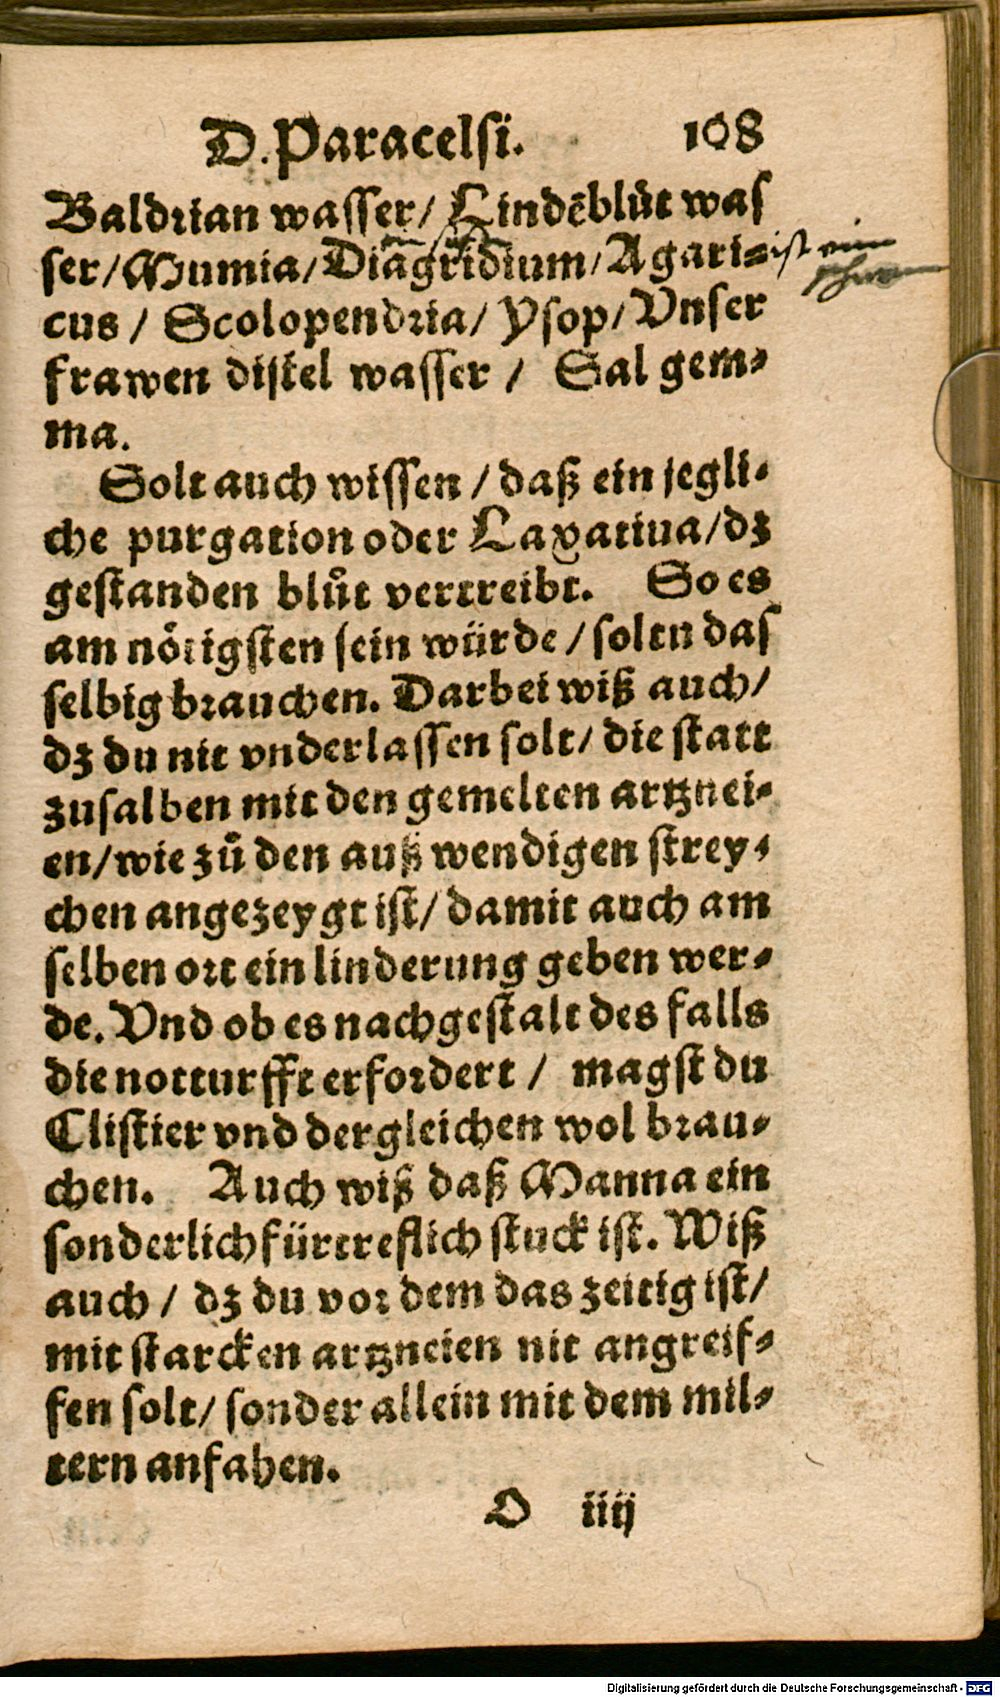 D. Paracelsi. 108
Baldrian wasser/ Lindēblůt was
ser/Mumia/Diagridium/Agari- ist ein
cus / Scolopendria/ Ysop/ Vnser
frawen distel wasser / Sal gem-
ma.
Solt auch wissen / daß ein jegli-
che purgation oder Laxatiua/dz
gestanden blůt vertreibt. So es
am nötigsten sein würde / soltu das
selbig brauchen. Darbei wiß auch/
dz du nit vnderlassen solt/ die statt
zusalben mit den gemelten artznei-
en/wie zů den außwendigen strey-
chen angezeygt ist/ damit auch am
selben ort ein linderung geben wer-
de. Vnd ob es nach gestalt des falls
die notturfft erfordert / magst du
Clistier vnd dergleichen wol brau-
chen. Auch wiß daß Manna ein
sonderlich fürtreflich stuck ist. Wiß
auch / dz du vor dem das zeitig ist/
mit starcken artzneien nit angreif-
fen solt/ sonder allein mit dem mil-
tern anfahen.
O iiij
Digitalisierung gefördert durch die Deutsche Forschungsgemeinschaft - DFG